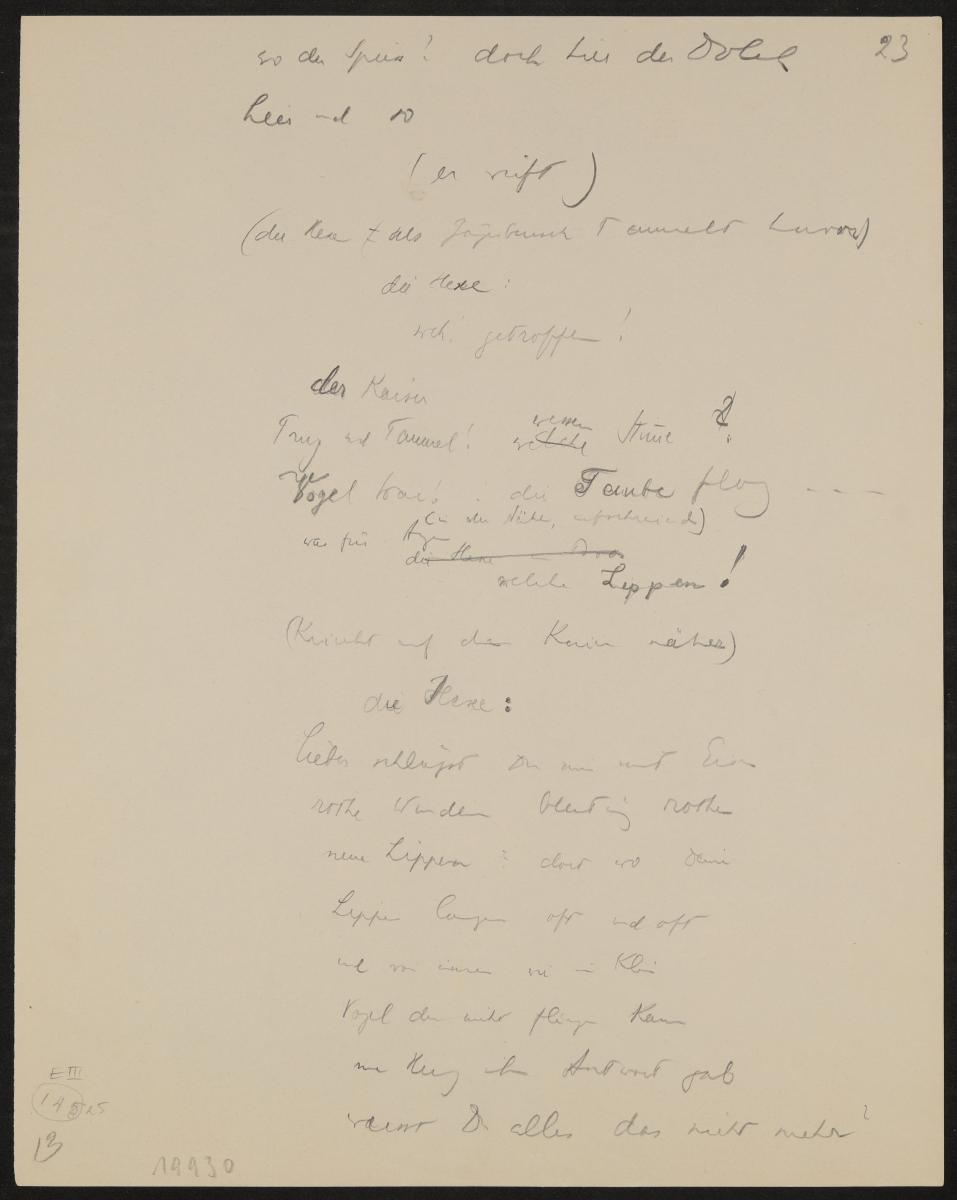 23
wo der Speer? doch hier der Dolch
hier und so
(er wirft)
(die Hexe als Jägerbursch taumelt hervor)
die Hexe:
weh! getroffen!
der Kaiser
Trug und Taumel! wessen Stimme?
welche
Vogel war's: die Taube flog ----
(in der Nähe, aufschreiend)
was für Augen
die Hexe
welche Lippen!
(Kriecht auf den Knien näher)
die Hexe:
Lieber schlügst Du mir mit Eisen
rothe Wunden blutig rothe
neue Lippen: dort wo Deine
Lippen lagen oft und oft
und von innen wie ein klein
Vogel der nicht fliegen kann
mein Herz ihnen Antwort gab
weisst Du alles das nicht mehr?
E III
14 25
13
19930